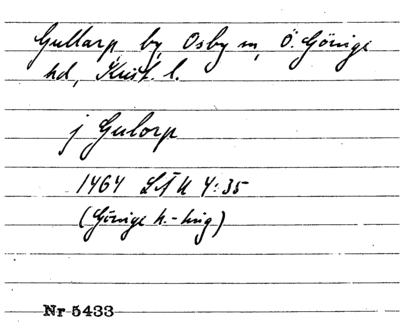 Gullarp, by, Osby sn, Ö. Göinge
hd, Krist. l.
j Gulorp
1464 LÄU 4:35
(Göinge h.-ting)
Nr 5433